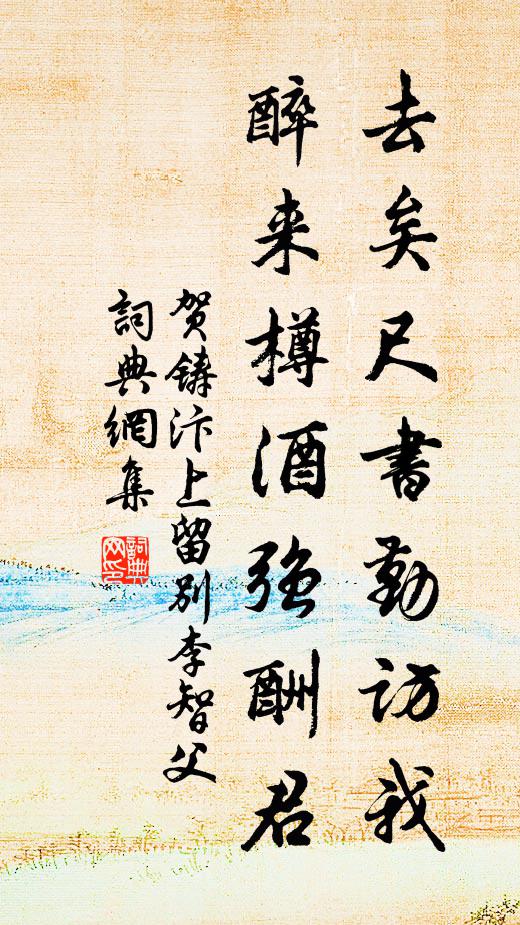 去矣尺書勤访我
醉来樽酒强酬君
贺鑄汴上留别李智父
詞典網集
詞典网印